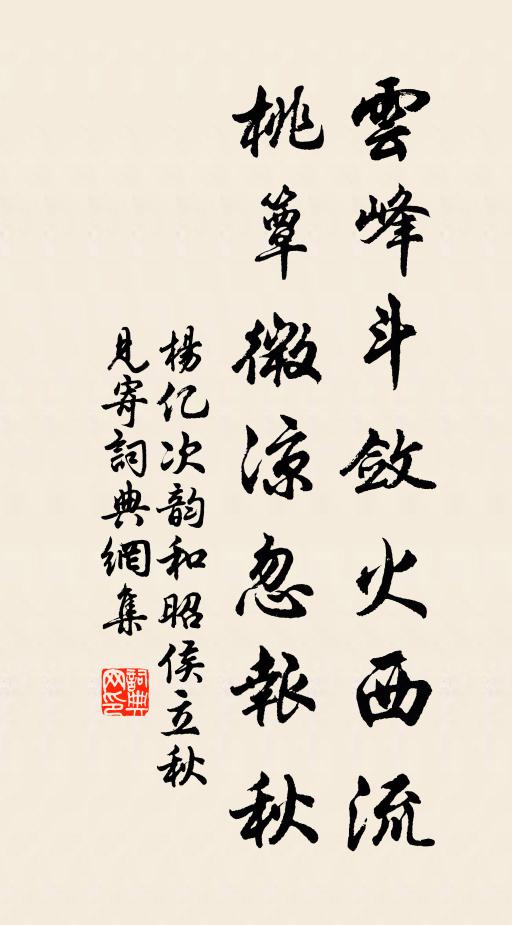 雲峰斗斂火西流
桃簟微涼忽報秋
楊億次韵和昭侯立秋
見寄詞典網集
詞典网印